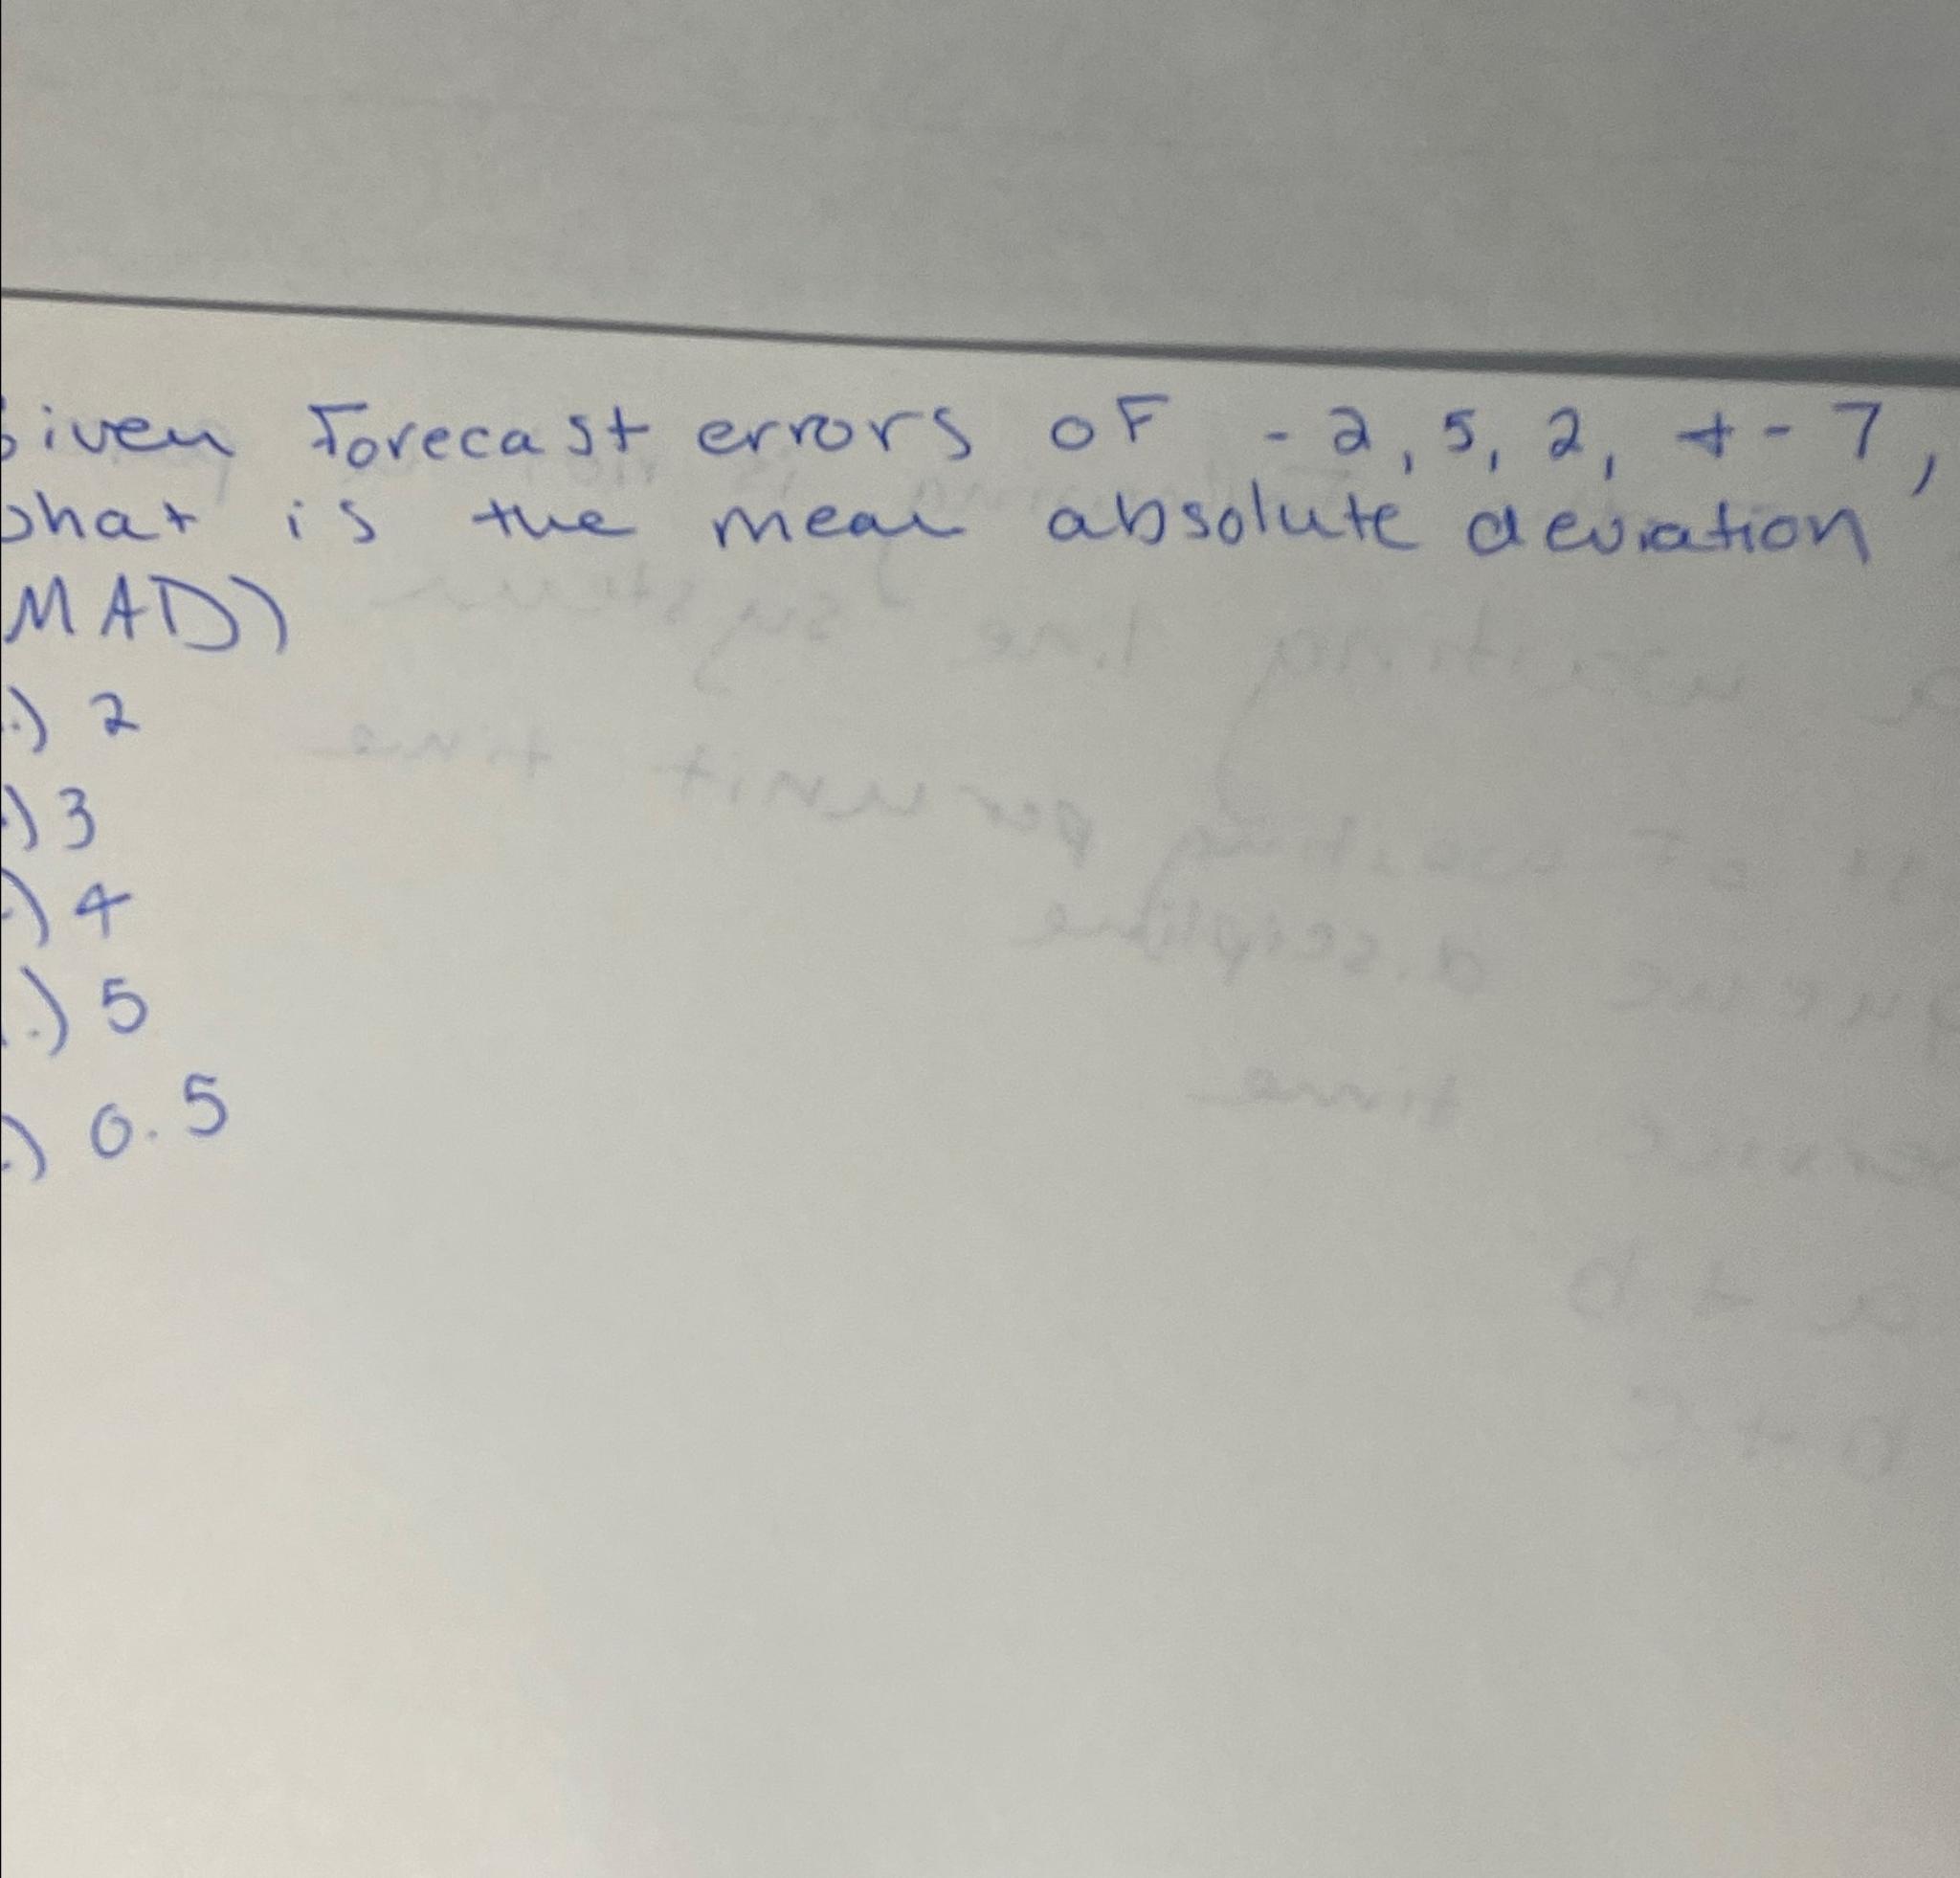 Given Forecast errors of -2, 5, 2, + -7,
what is the mean absolute deviation
MAD)
.) 2
.) 3
.) 4
.) 5
.) 0.5